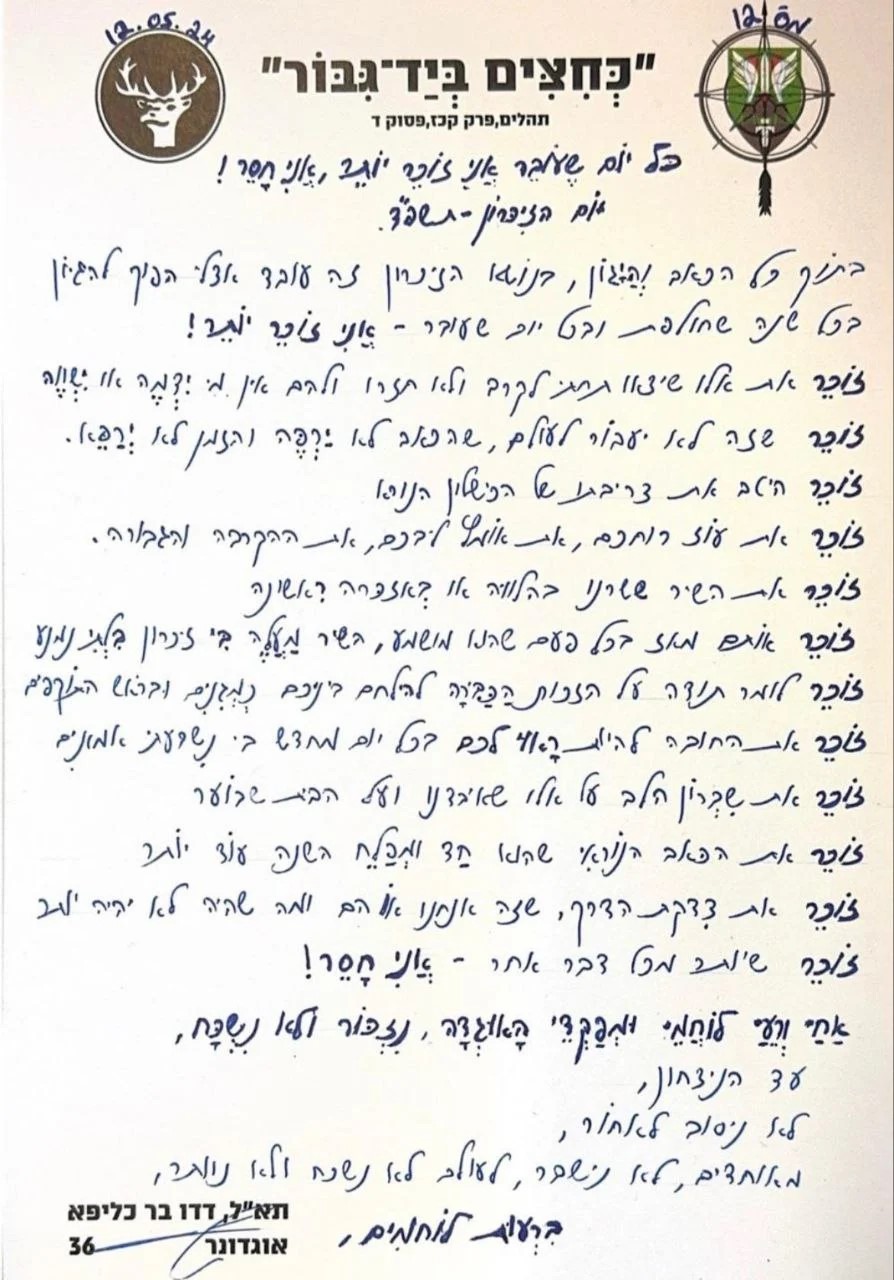 12.05.24
מס 12
"כְּחִצִּים בְּיַד־גִּבּוֹר"
תהלים, פרק קכז, פסוק ד
כל יום שֶעוֹבֵר אֲנִי זוֹכֵר יוֹתֵר, אֲנִי חָסֵר!
יום הזיכרון - תשפ"ד.
בתוך כל הכאב וְהַיָּגוֹן, בנושא הזיכרון זה עובד אצלי הפוך להגיון
בכל שנה שחולפת ובכל יום שעובר - אֲנִי זוֹכֵר יוֹתֵר!
זוֹכֵר את אלו שיצאו תחתי לקרב ולא חזרו ולהם אין מי יִדְמֶה או יִשְׁוֶוה
זוֹכֵר שזה לא יעבור לעולם, שהכאב לא יַרְפֶּה והזמן לא יְרַפֵּא.
זוֹכֵר היטב את צריבתו של הכישלון הנורא
זוֹכֵר את עוז רוחכם, את אומץ ליבכם, את ההקרבה והגבורה.
זוֹכֵר את השיר ששרנו בהלוויה או בְּאזכרה רִאשונה
זוֹכֵר אותם מאז בכל פעם שהוא מושמע, השיר מַעֲלֶה בִּי זיכרון בִּלְתִּי נמנע
זוֹכֵר לומר תודה על הזכות הַכַּבִּירָה להילחם ביניכם כִּמְגִנִּים ובראש התוקפים
זוֹכֵר את החובה להיות רָאוּי לכם בכל יום מחדש כי נִשְׁבַּעְתִּי אמונִים
זוֹכֵר את שִׁבְרוֹן הלב על אלו שאיבדנו ועל הבית שבוער
זוֹכֵר את הכאב הנוראִי שהוא חַד וּמְפַלֵּחַ השנה עוֹד יוֹתר
זוֹכֵר את צִדקת הדרך, שזה אנחנו אוֹ הם ומה שהיה לא יהיה יותר
זוֹכֵר שיותר מכל דבר אחר - אֲנִי חָסֵר!
אַחַי וְרֵעַי לוֹחֲמֵי וּמְפַקְּדֵי הָאוּגְדָּה, נִזְכּוֹר ולא נִשְׁכַּח,
עד הניצחון,
לא ניסוב לאחור,
מאוחדים, לא נישבר, לעולם לא נשכח ולא נוותר,
בְּרֵעוּת לוֹחמִים,
תא"ל, דדו בר כליפא
אוגדונר 36